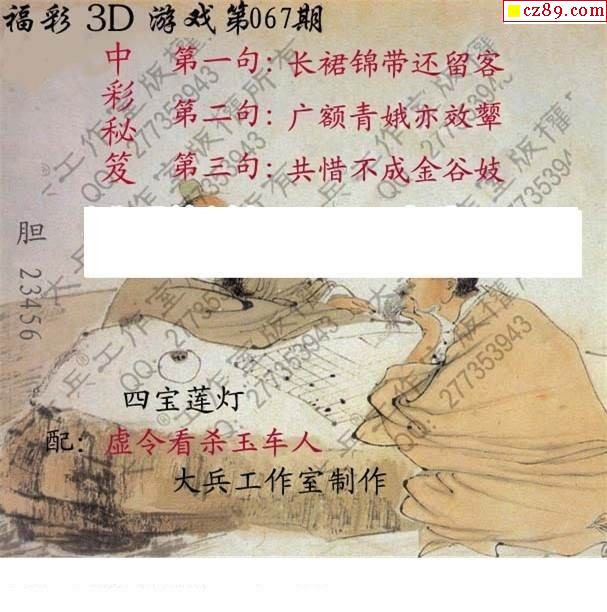 福彩 3D 游戏第067期
cz89.com
中彩秘笈
第一句：长裙锦带还留客
第二句：广额青娥亦效颦
第三句：共惜不成金谷妓
胆 23456
四宝莲灯
配：虚令看杀玉车人
大兵工作室制作
大兵®工作室版权所有
QQ:277353943